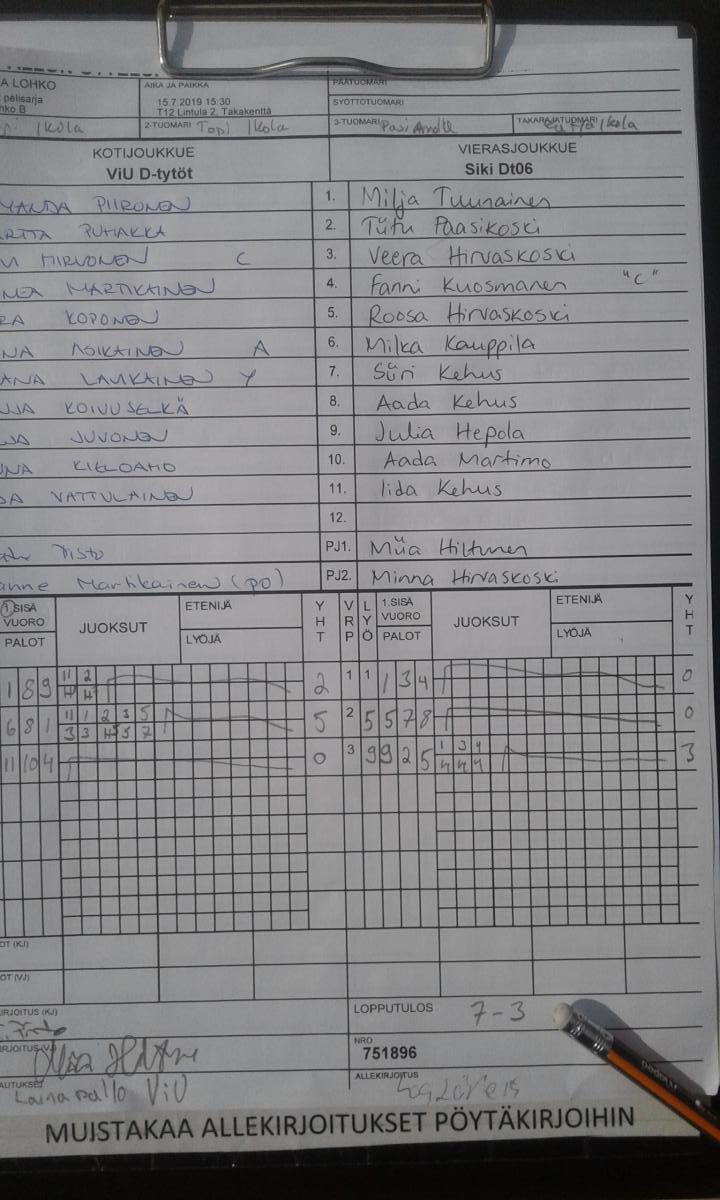 A LOHKO
pelisarja
nko B
AIKA JA PAIKKA
15.7.2019 15:30
T12 Lintula 2, Takakenttä
PÄÄTUOMARI
SYÖTTÖTUOMARI
Ikola
2-TUOMARI Topi Ikola
3-TUOMARI Pasi
TAKARAJATUOMARI Ikola
KOTIJOUKKUE
ViU D-tytöt
VIERASJOUKKUE
Siki Dt06
MANDA PIIRONEN 1. Milja Tuunainen
RTTA PUHAKKA 2. Tütu Paasikoski
VI HIRVONEN C 3. Veera Hirvaskoski
NEA MARTIKAINEN 4. Fanni Kuosmanen "C"
RA KOPONEN 5. Roosa Hirvaskoski
NA ASIKAINEN A 6. Milka Kauppila
ANA LAUKKAINEN Y 7. Siiri Kehus
JA KOIVUSELKÄ 8. Aada Kehus
JA JUVONEN 9. Julia Hepola
NA KIELOAHO 10. Aada Martimo
DA VATTULAINEN 11. Iida Kehus
12.
Tisto PJ1. Miia Hiltunen
anne Martikainen (po) PJ2. Minna Hirvaskoski
1.SISÄ VUORO PALOT JUOKSUT ETENIJÄ LYÖJÄ YHT VRP LYÖ 1.SISÄ VUORO PALOT JUOKSUT ETENIJÄ LYÖJÄ YHT
1 8 9 11 2 2 1 1 1 3 4 0
4 4
6 8 1 11 1 2 3 5 5 2 5 5 7 8 0
3 3 4 5 7
11 10 4 0 3 9 9 2 5 1 3 4 3
4 4 4
OT (KJ)
OT (VJ)
IRJOITUS (KJ)
LOPPUTULOS 7-3
IRJOITUS (VJ)
NRO
751896
AUTUKSET
Lainapallo ViU
ALLEKIRJOITUS
MUISTAKAA ALLEKIRJOITUKSET PÖYTÄKIRJOIHIN